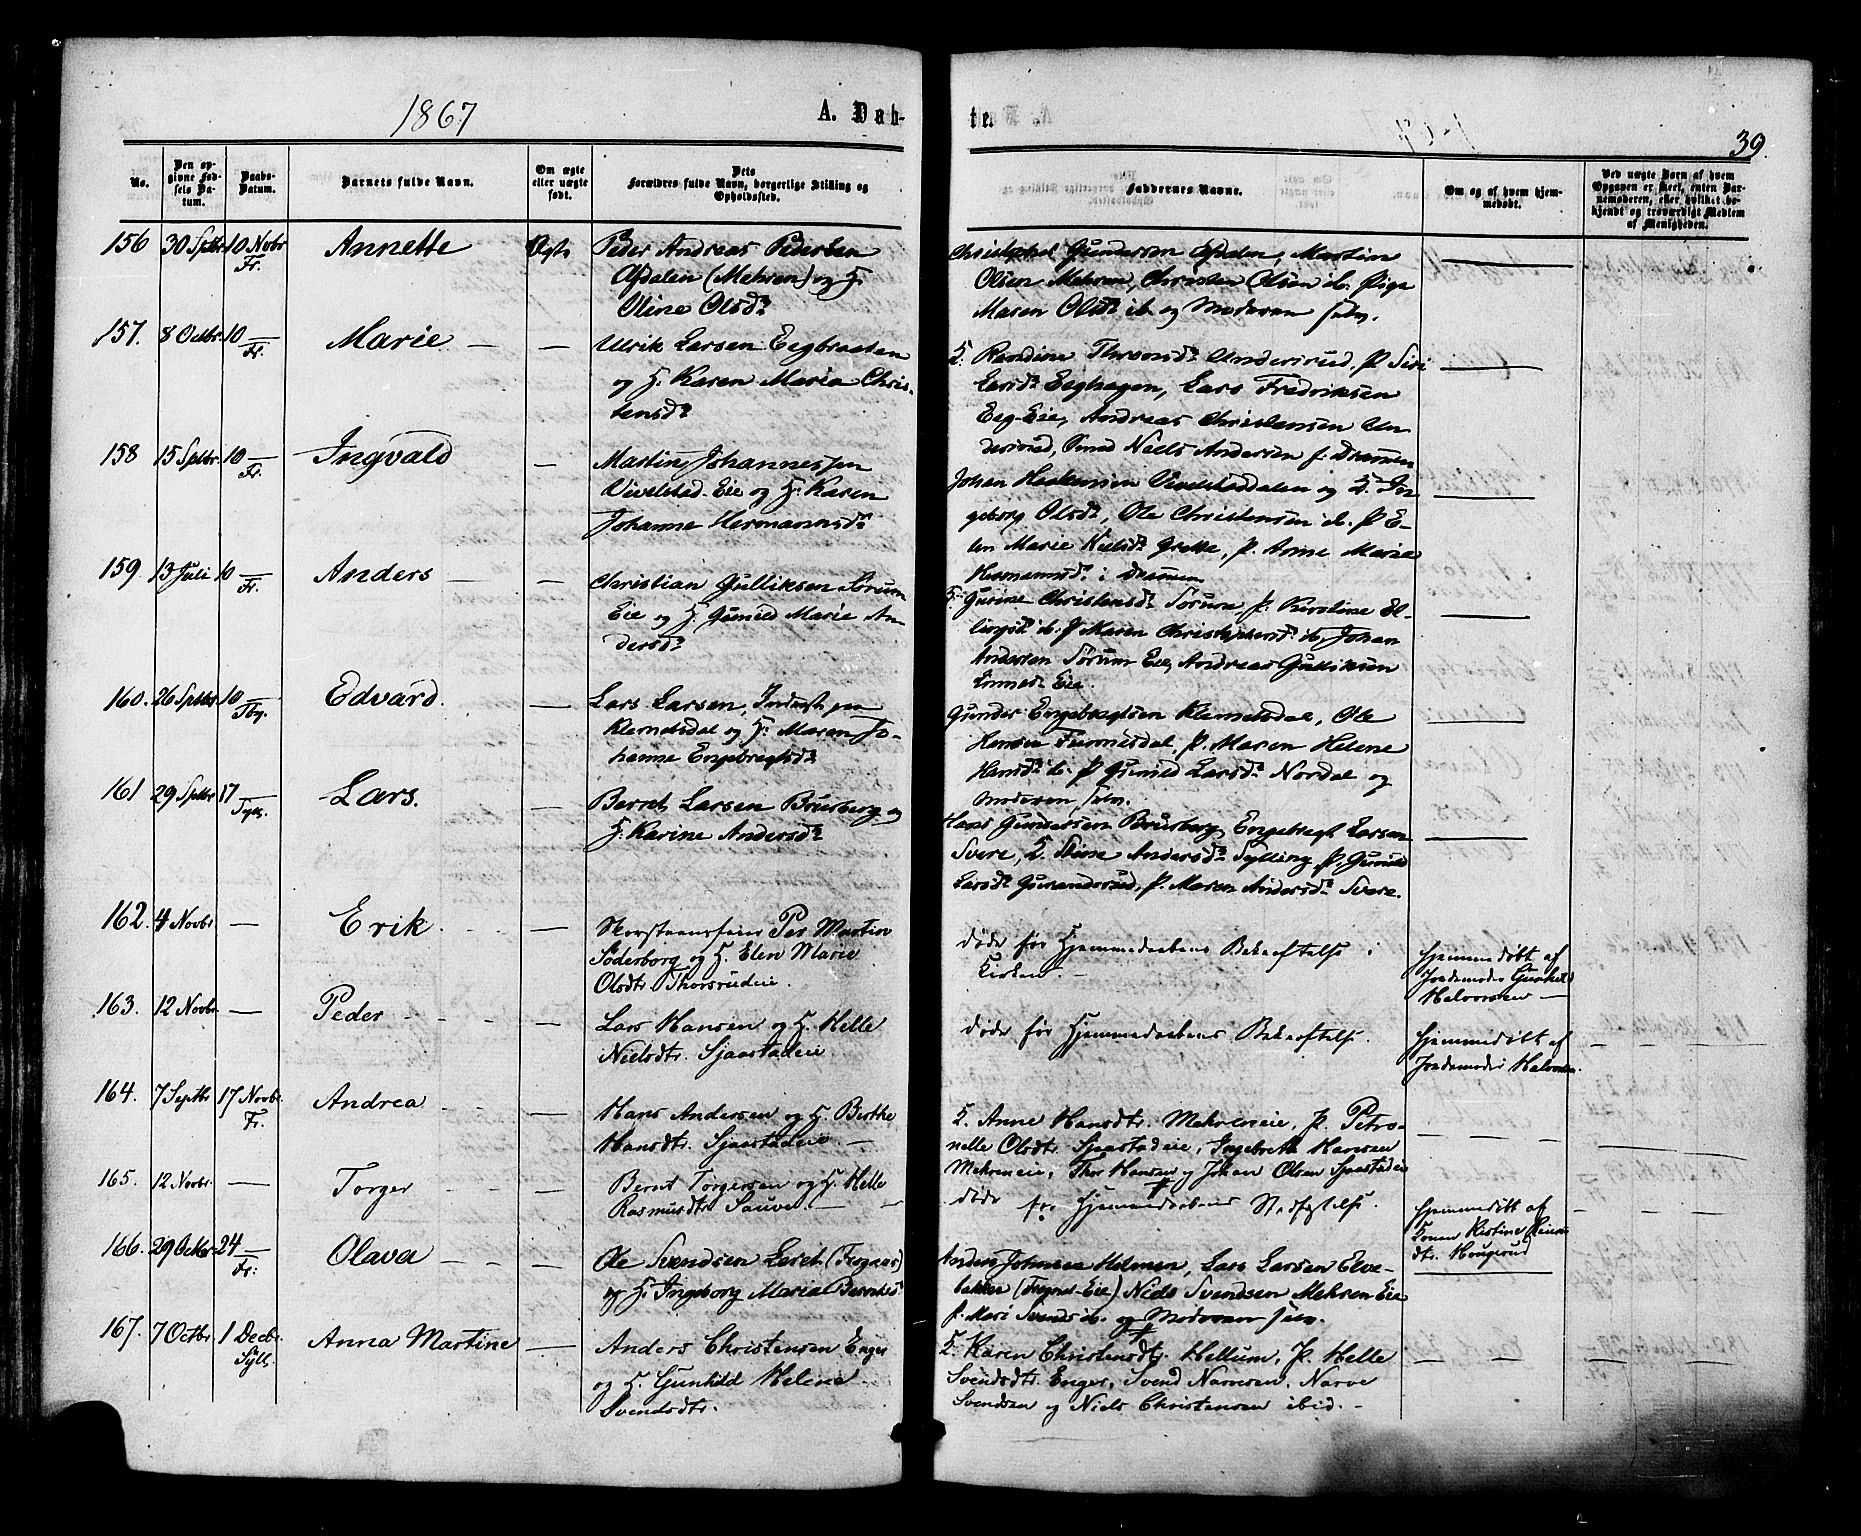 1867
A. Døb-
te.
39.
No.
Den opgivne Fødsels Datum.
Daabs-Datum.
Barnets fulde Navn.
Om ægte eller uægte født.
Dets Forældres fulde Navn, borgerlige Stilling og Opholdssted.
Faddernes Navne.
Om og af hvem hjemmedøbt.
Ved uægte Barn af hvem Opgaven er skeet, enten Barnemoderen, eller hvilket bekjendt og troværdigt Medlem af Menigheden.
156 30 Septbr 10 Novbr Fr. Annette Ægte
Peder Andreas Pedersen
Afdalen (Mehren) og H.
Oline Olsdr
Christopher Gundersen Afdalen, Martin
Olsen Mehren, Christen Olsen ib. Pige
Maren Olsdr ib og Moderen selv.
157. 8 Octbr. 10 — Fr. Marie — —
Ulrik Larsen Eegbraaten
og H. Karen Maria Chris-
tensdr
K. Randine Thronsdr Undersrud. P. Siri
Larsdr Eeghagen, Lars Fredriksen
Eeg-Eie, Andreas Christensen Un-
dersrud, Smed Niels Andersen f. Drammen
158 15 Septbr. 10 — Fr. Ingvald —
Martin Johannessen
Vivelstad-Eie og H. Karen
Johanne Hermannsdr
Johan Haakensen Vivelstaddalen og K. In-
geborg Olsdr, Ole Christensen ib. P. E-
len Marie Nielsdr Grette, P. Anne Marie
Hermannsdr i Drammen
159 13 Juli 10 — Fr. Anders — —
Christian Gulliksen Sørum
Eie og H. Gunild Marie An-
dersdr
K. Gurine Christensdr Sørum, P. Karoline El-
lingsdr ib. P Maren Christophersdr ib, Johan
Andersen Sørum Eie, Andreas Gulliksen
Eie.
160. 26 Septbr 10 — Edvard. —
Lars Larsen,
Klemetsdal og H. Maren Jo-
hanne Engebregtsdr
Gunder Engebregtsen Klemetsdal, Ole
Hansen, P. Maren Helene
Hansdr ib. P Gunild Larsdr Nordal og
Moderen selv.
161 29 Septbr 17 — Sylb. Lars. —
Bernt Larsen Brusberg og
H. Karine Andersdr
Hans Gundersen Brusberg, Engebregt Larsen
Svere, K. Stine Andersdr Sylling, P. Gunild
Larsdr Gunandsrud, P. Maren Andersdr Svere.
162 4 Novbr — Erik. — —
Skorsteensfeier Per Martin
Söderborg og H. Elen Marie
Olsdtr. Thorsrudeie.
døde før Hjemmedaabens Bekræftelse i
Kirken. —
hjemmedøbt af
Jordemoder Gunhild
Halvorsen —
163. 12 Novbr. — Peder — — —
Lars Hansen og H. Helle
Nielsdtr. Sjaastadeie.
døde før Hjemmedaabens Bekræftelse.
hjemmedøbt af
Jordemoder Halvorsen.
164. 7 Septbr 17 Novbr. Fr. Andrea — —
Hans Andersen og H. Berthe
Hansdtr. Sjaastadeie —
K. Anne Hansdtr. Mehreneie, P. Petro-
nelle Olsdtr. Sjaastadeie, Ingebreth Hansen
Mehreneie, Thor Hansen og Johan Olsen Sjaastadeie
165. 12 Novbr. — Torger — —
Bernt Torgersen og H. Helle
Rasmusdtr Sauve — —
døde før Hjemmedaabens Stadfæstelse.
hjemmedøbt af
Konen Kistine
dtr. Hougsrud
166. 29 Octbr. 24 — Fr. Olava — — —
Ole Svendsen Laret (Frognes)
og H. Ingeborg Maria Berntsdr
Anders Johnsen Helman, Lars Larsen Elve-
bakken (Frogner-Eie) Niels Svendsen Mehren Eie
P. Mari Svendsdr ib. og Moderen selv.
167. 7 Octbr. 1 Decbr. Syll. Anna Martine —
Anders Christensen Enger
og H. Gunhild Helene
Svendsdtr.
K. Karen Christensdtr. Hellum, P. Helle
Svendsdtr. Enger, Svend Narvesen, Narve
Svendsen og Niels Christensen ibid. —